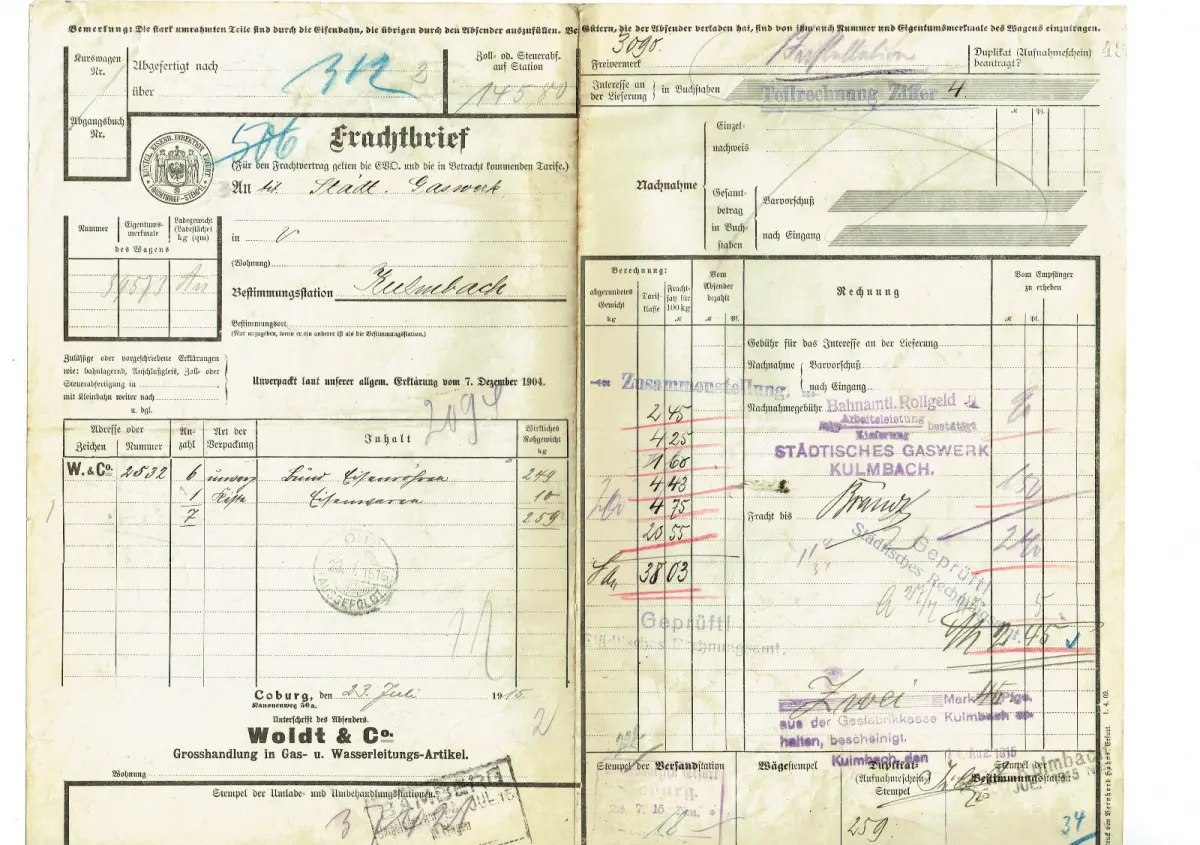 Bemerkung: Die stark umrahmten Teile sind durch die Eisenbahn, die übrigen durch den Absender auszufüllen. Bei Gütern, die der Absender verladen hat, sind von ihm auch Nummer und Eigentumsmerkmale des Wagens einzutragen.
Kurswagen
Nr.
Abgefertigt nach
312
2
über
Zoll- od. Steuerabf.
auf Station
Abgangsbuch
Nr.
506
KÖNIGL. EISENB. DIREKTION ERFURT
FRACHTBRIEF-STEMPEL
Frachtbrief
(Für den Frachtvertrag gelten die EVO. und die in Betracht kommenden Tarife.)
An tit. Städt. Gaswerk
Nummer
Eigentums-
merkmale
Ladegewicht
(Ladefläche)
kg (qm)
des Wagens
in
(Wohnung)
Bestimmungsstation Kulmbach
Bestimmungsort
(Nur anzugeben, wenn ein anderer ist als die Bestimmungsstation.)
Zulässige oder vorgeschriebene Erklärungen
wie: bahnlagernd, Anschlußgleis, Zoll- oder
Steuerabfertigung in
mit Kleinbahn weiter nach
u. dgl.
Unverpackt laut unserer allgem. Erklärung vom 7. Dezember 1904.
Adresse oder
Zeichen
Nummer
An-
zahl
Art der
Verpackung
Inhalt
Wirkliches
Rohgewicht
kg
W. & Co. 2532 6 unverp Bund Eisenröhren 249
1 Kiste Eisenwaren 10
7 259
AUSGEFOLGT
Coburg, den 23. Juli 1915.
Kanonenweg 50a.
Unterschrift des Absenders.
Woldt & Co.
Grosshandlung in Gas- u. Wasserleitungs-Artikel.
Wohnung
Stempel der Umlade- und Umbehandlungsstationen.
3090.
Freivermerk
Duplikat (Aufnahmeschein)
beantragt?
Interesse an
der Lieferung
in Buchstaben
Teilrechnung Ziffer 4.
Einzel-
nachweis
M
Pf.
Nachnahme
Gesamt-
betrag
in Buch-
staben
Barvorschuß
nach Eingang
Berechnung:
abgerundetes
Gewicht
kg
Tarif-
klasse
Fracht-
satz für
100 kg
M
Vom
Absender
bezahlt
M
Pf.
Rechnung
Vom Empfänger
zu erheben
M
Pf.
Gebühr für das Interesse an der Lieferung
Nachnahme
Barvorschuß
nach Eingang
Nachnahmegebühr
Zusammenstellung.
2 45
4 25
1 60
4 43
4 75
20 55
38 03
Bahnamtl. Rollgeld
Arbeitsleistung
Lieferung
bestätigt
STÄDTISCHES GASWERK
KULMBACH.
Fracht bis
240
5
2 45
Geprüft!
Städtisches Rechnungsamt.
Geprüft!
Städtisches Rechnungsamt.
Zwei Mark 45 Pfge.
aus der Gasfabrikkasse Kulmbach er-
halten, bescheinigt.
Kulmbach, den
Stempel der Versandstation
Coburg.
23. 7. 15
Wägestempel
Duplikat-
(Aufnahmeschein)
Stempel
259
Stempel der
Bestimmungsstation
Kulmbach
34
Druck von Bernhard Haberer, Erfurt 1. 4. 09.